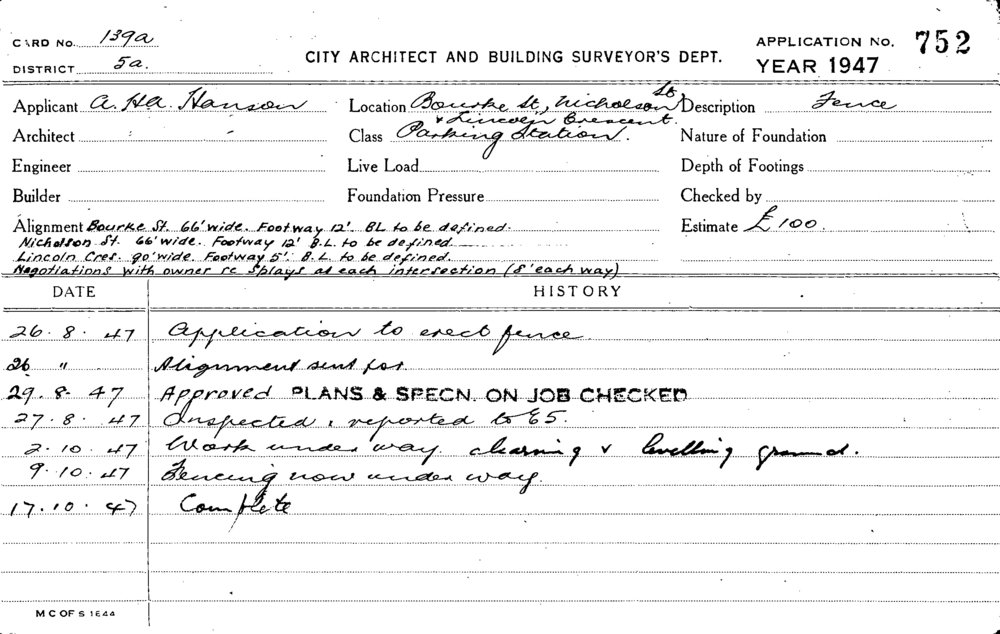 CARD No. 139a
DISTRICT 5a.
CITY ARCHITECT AND BUILDING SURVEYOR'S DEPT.
APPLICATION No. 752
YEAR 1947
Applicant A. Ha. Hanson
Location Bourke St, Nicholson St, & Lincoln Crescent.
Description Fence
Architect
Class Parking Station.
Nature of Foundation
Engineer
Live Load
Depth of Footings
Builder
Foundation Pressure
Checked by
Alignment Bourke St. 66' wide. Footway 12'. BL to be defined.
Nicholson St. 66' wide. Footway 12' B.L. to be defined
Lincoln Cres. 90' wide. Footway 5'. B.L. to be defined.
Negotiations with owner re splays at each intersection (8' each way)
Estimate £100
DATE HISTORY
26.8.47 Application to erect fence
26 " Alignment sent for
29.8.47 Approved PLANS & SPECN. ON JOB CHECKED
27.8.47 Inspected, reported to E5.
2.10.47 Work under way. clearing & levelling ground.
9.10.47 Fencing now under way.
17.10.47 Complete
M C OF S 1644